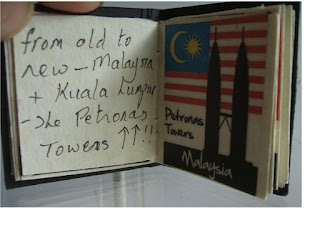 from old to
new - Malaysia
+ Kuala Lumpur
-> The Petronas
Towers ↑↑!!
Petronas
Towers
Malaysia